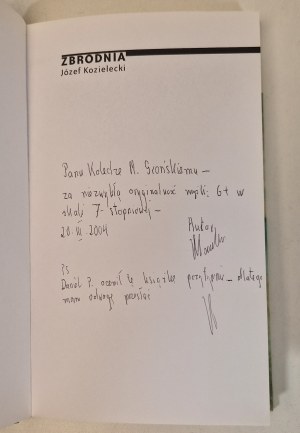 ZBRODNIA
Józef Kozielecki
Panu Koledze A. Słońskiemu –
za niezwykłą oryginalność myśli; 6+ w
skali 7-stopniowej –
20.III.2004
Autor
PS
Daniel P. ocenił tę książkę pozytywnie – dlatego
mam odwagę przesłać